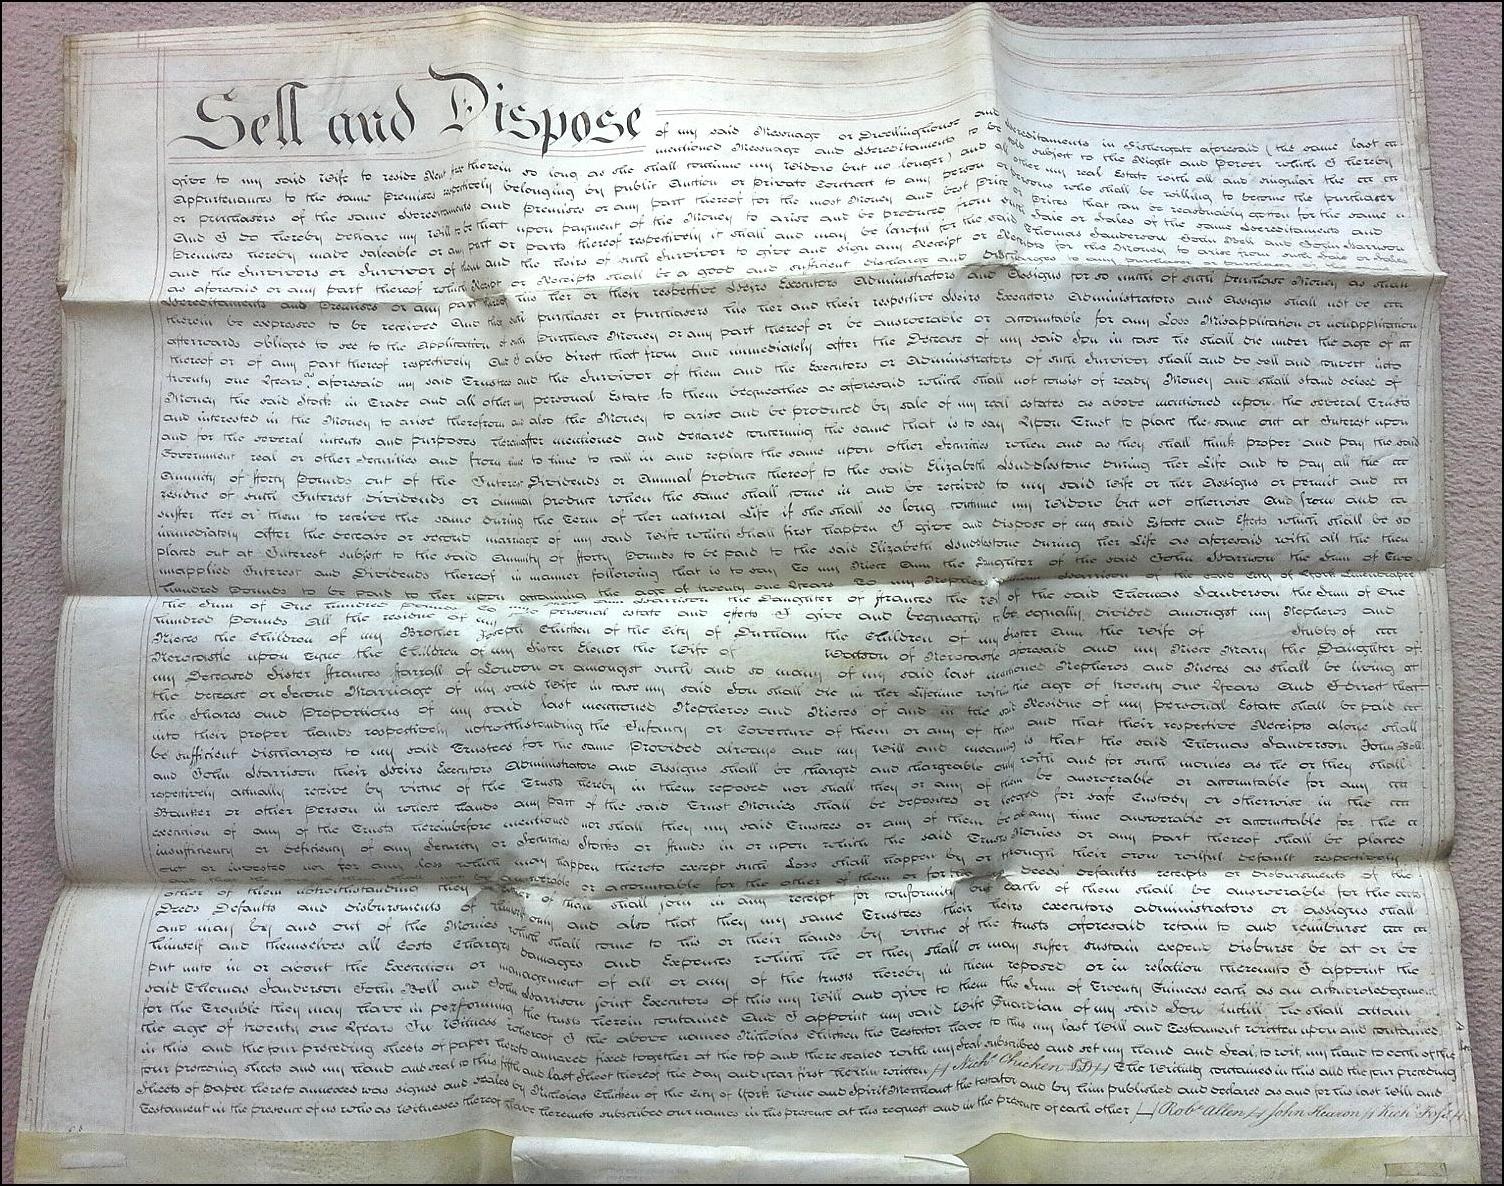 Sell and Dispose of my said Messuage or Dwellinghouse and Hereditaments in Fishergate aforesaid (the same last
mentioned Messuage and Hereditaments to be sold subject to the Right and Power which I hereby
give to my said Wife to reside therein so long as she shall continue my Widow but no longer) and all other my real Estate with all and singular the
Appurtenances to the same Premises respectively belonging by public Auction or Private Contract to any person or persons who shall be willing to become the purchaser
or purchasers of the same Hereditaments and Premises or any part thereof for the most Money and best Price or Prices that can be reasonably gotten for the same
And I do hereby declare my Will to be that upon payment of the Money to arise and be produced from such Sale or Sales of the same Hereditaments and
Premises hereby made saleable or any part or parts thereof respectively it shall and may be lawful for the said Thomas Sanderson John Bell and John Harrison
and the Survivors or Survivor of them and the Heirs of such Survivor to give and sign any Receipt or Receipts for the Money to arise from such Sale or Sales
as aforesaid or any part thereof which Receipt or Receipts shall be a good and sufficient discharge and Discharges to any purchaser
Hereditaments and Premises or any part thereof his her or their respective Heirs Executors Administrators and Assigns for so much of such purchase Money as shall
therein be expressed to be received And that such purchaser or purchasers his her and their respective Heirs Executors Administrators and Assigns shall not be
afterwards obliged to see to the Application of such Purchase Money or any part thereof or be answerable or accountable for any Loss Misapplication or nonapplication
thereof or of any part thereof respectively And I also direct that from and immediately after the Decease of my said Son in case he shall die under the age of
twenty one Years as aforesaid my said Trustees and the Survivor of them and the Executors or Administrators of such Survivor shall and do sell and convert into
Money the said Stock in Trade and all other my personal Estate to them bequeathed as aforesaid which shall not consist of ready Money and shall stand seised of
and interested in the Money to arise therefrom and also the Money to arise and be produced by sale of my real estates as above mentioned upon the several Trusts
and for the several intents and purposes thereinafter mentioned and declared concerning the same that is to say Upon Trust to place the same out at Interest upon
Government real or other Securities and from time to time to call in and replace the same upon other Securities when and as they shall think proper and pay the said
Annuity of fforty Pounds out of the Interest Dividends or Annual produce thereof to the said Elizabeth Huddlestone during her Life and to pay all the
residue of such Interest dividends or annual produce when the same shall come in and be received to my said Wife or her Assigns or permit and
suffer her or them to receive the same during the Term of her natural Life if she shall so long continue my Widow but not otherwise And from and
immediately after the decease or second marriage of my said Wife which shall first happen I give and dispose of my said Estate and Effects which shall be so
placed out at Interest subject to the said Annuity of fforty Pounds to be paid to the said Elizabeth Huddlestone during her Life as aforesaid with all the then
unapplied Interest and Dividends thereof in manner following that is to say To my Niece Ann the Daughter of the said John Harrison the Sum of Two
hundred Pounds to be paid to her upon attaining the age of twenty one Years To my Nephew Harrison of the said City of York
the Sum of One hundred pounds To my Harrison the Daughter of ffrances the of the said Thomas Sanderson the Sum of One
hundred Pounds All the residue of my personal estate and effects I give and bequeath to be equally divided amongst my Nephews and
Nieces the Children of my Brother Joseph Chicken of the City of Durham the Children of my Sister Ann the Wife of Stubbs of
Newcastle upon Tyne the Children of my Sister Elenor the Wife of Watson of Newcastle aforesaid and my Niece Mary the Daughter of
my Deceased Sister ffrances ffarrall of London or amongst such and so many of my said last mentioned Nephews and Nieces as shall be living at
the decease or Second Marriage of my said Wife in case my said Son shall die in her Lifetime within the age of twenty one Years And I direct that
the Shares and Proportions of my said last mentioned Nephews and Nieces of and in the said Residue of my personal Estate shall be paid
into their proper hands respectively notwithstanding the Infancy or Coverture of them or any of them and that their respective Receipts alone shall
be sufficient discharges to my said Trustees for the same Provided always and my Will and meaning is that the said Thomas Sanderson John Bell
and John Harrison their Heirs Executors Administrators and Assigns shall be charged and chargeable only with and for such monies as he or they shall
respectively actually receive by virtue of the Trusts hereby in them reposed nor shall they or any of them be answerable or accountable for any
Banker or other Person in whose hands any part of the said Trust Monies shall be deposited or lodged for safe Custody or otherwise in the
execution of any of the Trusts hereinbefore mentioned nor shall they my said Trustees or any of them be at any time answerable or accountable for the
insufficiency or deficiency of any Security or Securities Stocks or ffunds in or upon which the said Trust Monies or any part thereof shall be placed
out or invested nor for any loss which may happen thereto except such Loss shall happen by or through their own wilful default respectively
answerable or accountable for the other of them or for the deeds defaults receipts or disbursments of the
other of them notwithstanding they or either of them shall join in any receipt for conformity but each of them shall be answerable for the acts
Deeds Defaults and disbursments of himself only and also that they my same Trustees their heirs executors administrators or assigns shall
and may by and out of the Monies which shall come to his or their hands by virtue of the trusts aforesaid retain to and reimburse
himself and themselves all Costs Charges damages and Expences which he or they shall or may suffer sustain expend disburse be at or be
put unto in or about the Execution or management of all or any of the trusts hereby in them reposed or in relation thereunto I appoint the
said Thomas Sanderson John Bell and John Harrison joint Executors of this my Will and give to them the Sum of Twenty Guineas each as an acknowledgement
for the Trouble they may have in performing the trusts herein contained And I appoint my said Wife Guardian of my said Son untill he shall attain
the age of twenty one Years In Witness whereof I the above named Nicholas Chicken the Testator have to this my last Will and Testament written upon and contained
in this and the four preceding sheets of paper hereto annexed fixed together at the top and there sealed with my Seal subscribed and set my Hand and Seal, to wit, my hand to each of the
four preceding sheets and my Hand and Seal to this fifth and last Sheet hereof the day and year first therein written Nichs Chicken The Writing contained in this and the four preceding
Sheets of Paper hereto annexed was signed and sealed by Nicholas Chicken of the City of York Wine and Spirit Merchant the testator and by him published and declared as and for his last Will and
Testament in the presence of us who as Witnesses thereof have hereunto subscribed our names in his presence at his request and in the presence of each other Robt Allen John Hearon